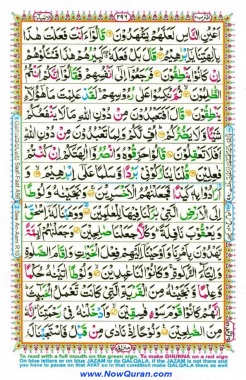 اَعْيُنِ النَّاسِ لَعَلَّهُمْ يَشْهَدُوْنَ قَالُوْٓا ءَاَنْتَ فَعَلْتَ هٰذَا
بِاٰلِهَتِنَا يٰٓاِبْرٰهِيْمُ قَالَ بَلْ فَعَلَهٗ كَبِيْرُهُمْ هٰذَا فَسْـَٔلُوْهُمْ
اِنْ كَانُوْا يَنْطِقُوْنَ فَرَجَعُوْٓا اِلٰٓى اَنْفُسِهِمْ فَقَالُوْٓا اِنَّكُمْ اَنْتُمُ
الظّٰلِمُوْنَ ثُمَّ نُكِسُوْا عَلٰى رُءُوْسِهِمْ لَقَدْ عَلِمْتَ مَا هٰٓؤُلَآءِ
يَنْطِقُوْنَ قَالَ اَفَتَعْبُدُوْنَ مِنْ دُوْنِ اللّٰهِ مَا لَا يَنْفَعُكُمْ
شَيْـًٔا وَّلَا يَضُرُّكُمْ اُفٍّ لَّكُمْ وَلِمَا تَعْبُدُوْنَ مِنْ دُوْنِ اللّٰهِ
اَفَلَا تَعْقِلُوْنَ قَالُوْا حَرِّقُوْهُ وَانْصُرُوْٓا اٰلِهَتَكُمْ اِنْ كُنْتُمْ
فٰعِلِيْنَ قُلْنَا يٰنَارُ كُوْنِيْ بَرْدًا وَّسَلٰمًا عَلٰٓى اِبْرٰهِيْمَ وَ
اَرَادُوْا بِهٖ كَيْدًا فَجَعَلْنٰهُمُ الْاَخْسَرِيْنَ وَنَجَّيْنٰهُ وَلُوْطًا
اِلَى الْاَرْضِ الَّتِيْ بٰرَكْنَا فِيْهَا لِلْعٰلَمِيْنَ وَوَهَبْنَا لَهٗٓ اِسْحٰقَ
وَيَعْقُوْبَ نَافِلَةً وَكُلًّا جَعَلْنَا صٰلِحِيْنَ وَجَعَلْنٰهُمْ اَئِمَّةً
يَّهْدُوْنَ بِاَمْرِنَا وَاَوْحَيْنَآ اِلَيْهِمْ فِعْلَ الْخَيْرٰتِ وَاِقَامَ الصَّلٰوةِ
وَاِيْتَآءَ الزَّكٰوةِ وَكَانُوْا لَنَا عٰبِدِيْنَ وَلُوْطًا اٰتَيْنٰهُ حُكْمًا
وَّعِلْمًا وَّنَجَّيْنٰهُ مِنَ الْقَرْيَةِ الَّتِيْ كَانَتْ تَّعْمَلُ الْخَبٰٓئِثَ
اِنَّهُمْ كَانُوْا قَوْمَ سَوْءٍ فٰسِقِيْنَ وَاَدْخَلْنٰهُ فِيْ رَحْمَتِنَا اِنَّهٗ
مِنَ الصّٰلِحِيْنَ وَنُوْحًا اِذْ نَادٰى مِنْ قَبْلُ فَاسْتَجَبْنَا لَهٗ
To read with a full mouth on the green sign, To make GHUNNA on a red sign
On blue letters or on blue JAZAM to do QALQALA. If the JAZAM is not there and
you have to pause on that AYAT so in that condition make QALQALA there as well
www.NowQuran.com